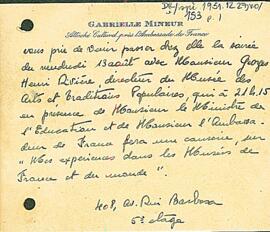 1951.12.29/01
153 p. 1
GABRIELLE MINEUR
Attaché Culturel près l'Ambassade de France
vous prie de venir passer chez elle la soirée
du vendredi 13 août avec Monsieur Georges
Henri Rivière, directeur du Musée des
Arts et Traditions Populaires, qui à 21h.15
en présence de Monsieur le Ministre de
l'Education et de Monsieur l'Ambassa-
deur de France fera une causerie, sur
"Mes expériences dans les Musées de
France et du monde"
408, Av. Rui Barbosa
6º étage